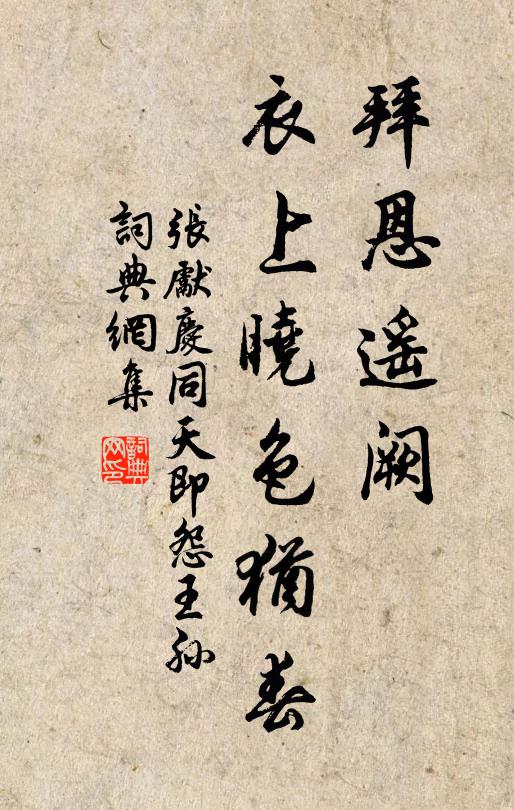 拜恩遥阙
衣上曉色猶春
張獻慶同天即怨王孙
詞典網集
詞典網印